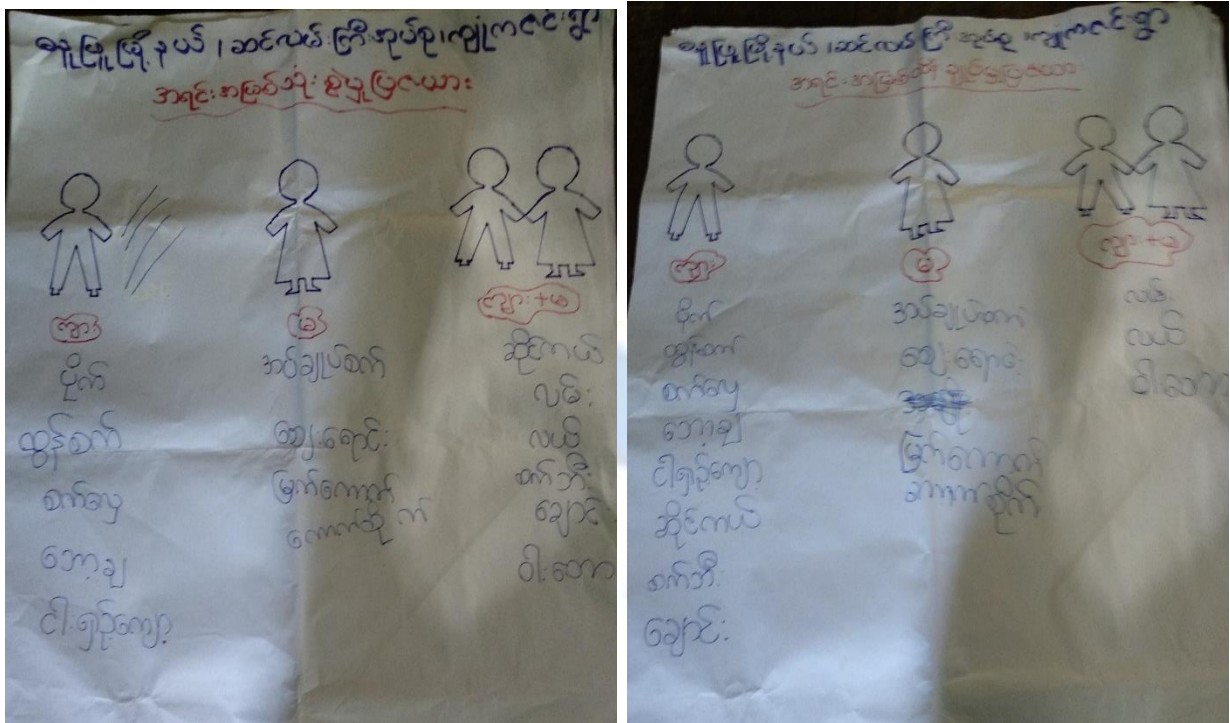 ဖျာပုံမြို့နယ်၊ ဆင်လယ်ကြီးအုပ်စု၊ ကျုံကဇင်းရွာ
အရင်းအမြစ်သုံးစွဲမှုပြဇယား
ကျား
မ
ကျား+မ
ပိုက်
ထွန်စက်
စက်လှေ
ဘော့ချ
ငါးရှဉ့်မျှော့
အပ်ချုပ်စက်
ဈေးရောင်း
မြက်ကောက်
ကောက်စိုက်
ဆိုင်ကယ်
လမ်း
လယ်
စက်ဘီး
ချောင်း
ဝါးတော
အရင်းအမြစ်ထိန်းချုပ်မှုပြဇယား
ကျား
မ
ကျား+မ
ပိုက်
ထွန်စက်
စက်လှေ
ဘော့ချ
ငါးရှဉ့်မျှော့
ဆိုင်ကယ်
စက်ဘီး
ချောင်း
အပ်ချုပ်စက်
ဈေးရောင်း
မြက်ကောက်
ကောက်စိုက်
လမ်း
လယ်
ဝါးတော